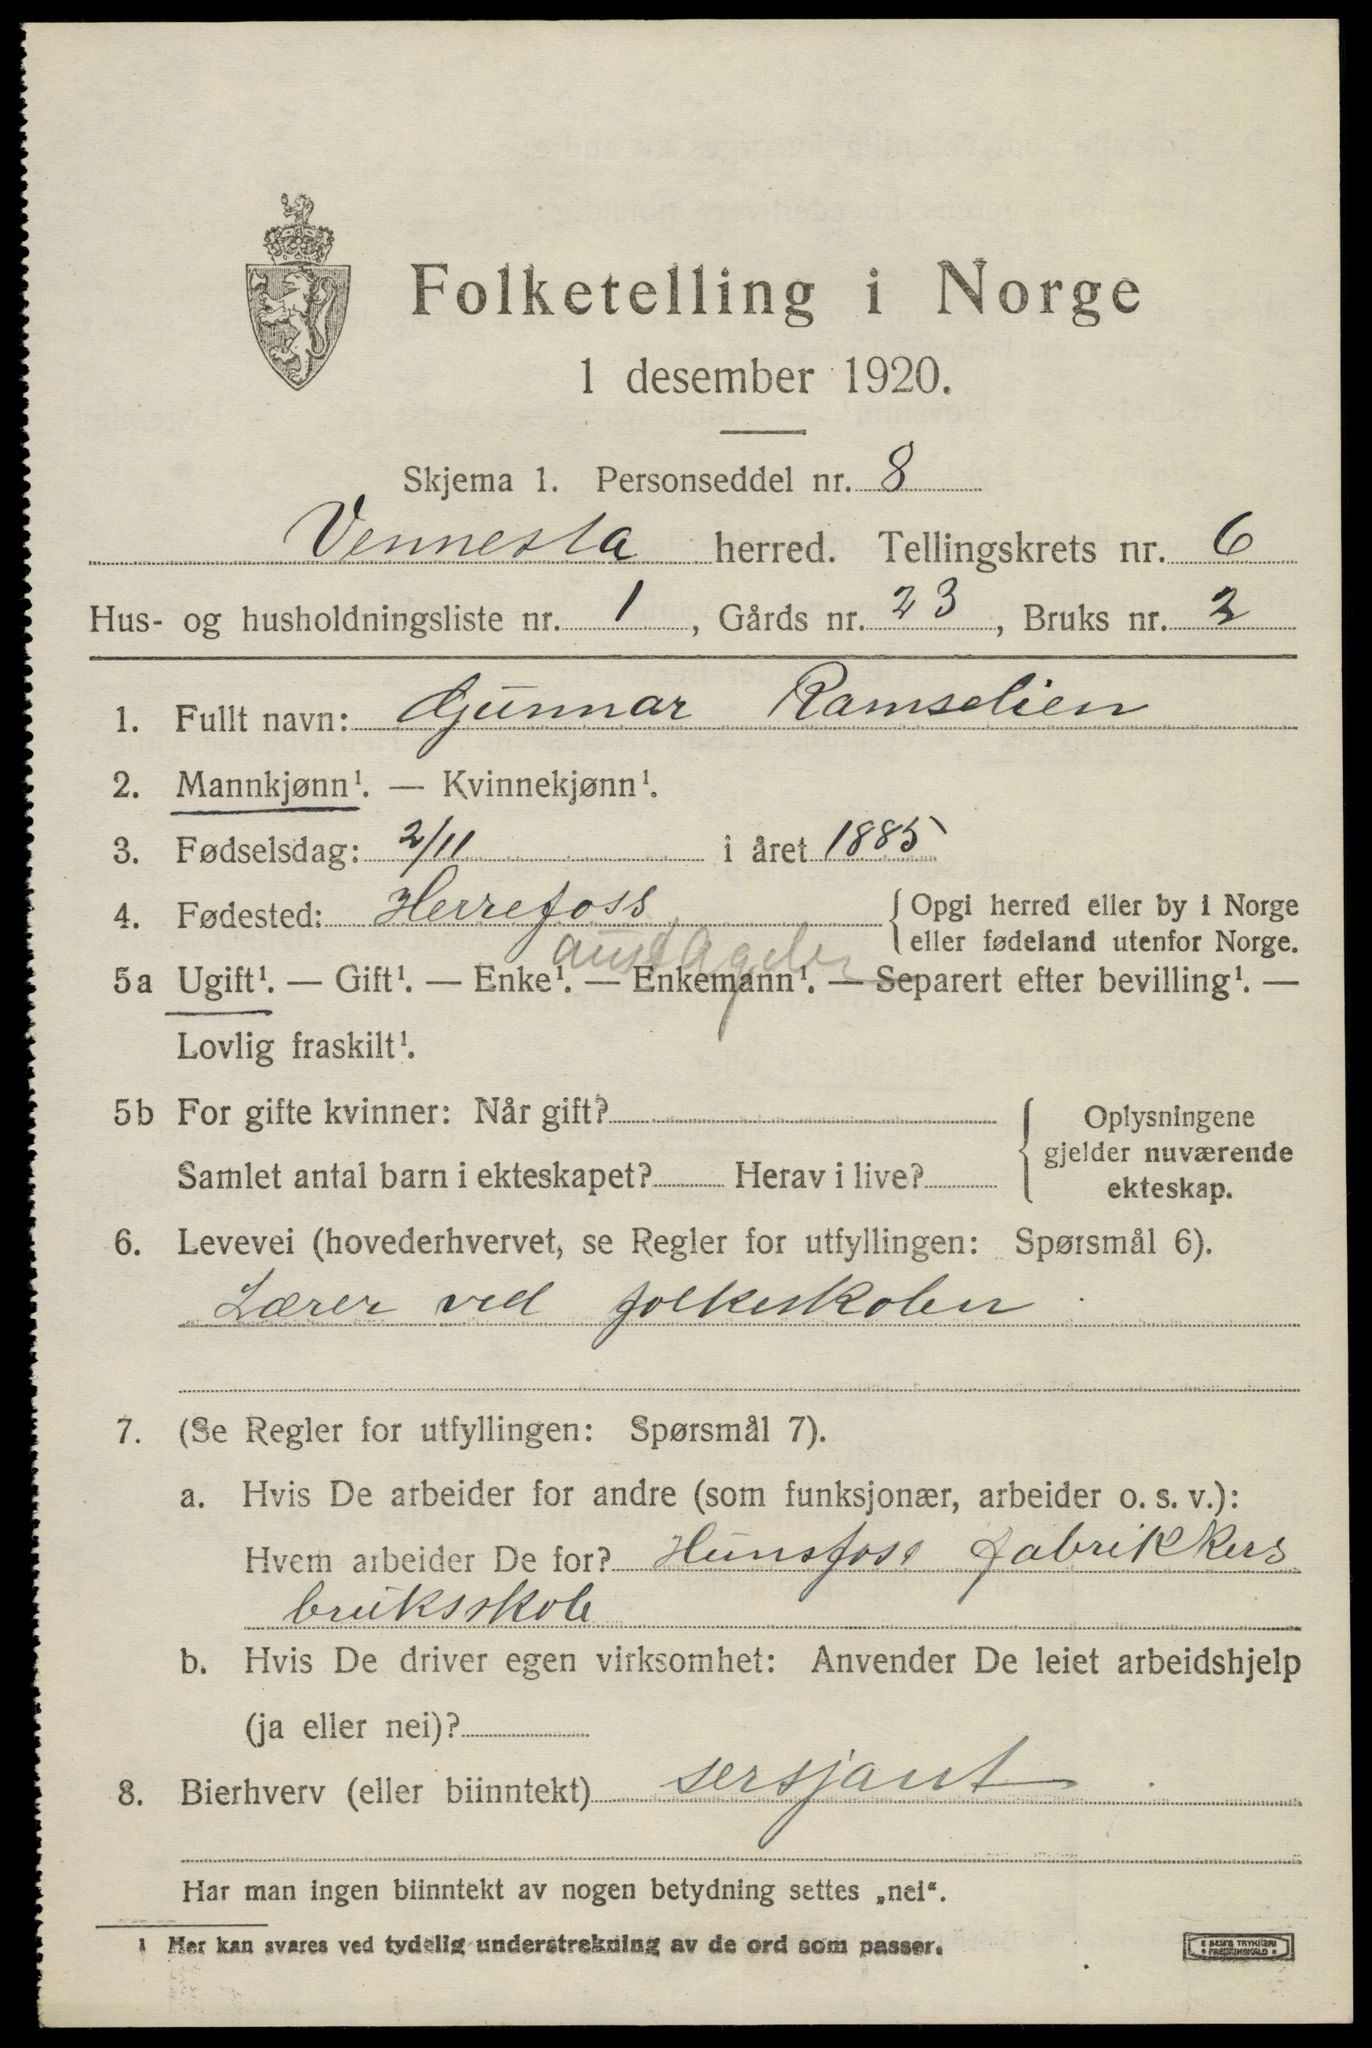 Folketelling i Norge
1 desember 1920.
Skjema 1. Personseddel nr. 8
Vennesla herred. Tellingskrets nr. 6
Hus- og husholdningsliste nr. 1, Gårds nr. 23, Bruks nr. 2
1. Fullt navn: Gunnar Ramselien
2. Mannkjønn¹. — Kvinnekjønn¹.
3. Fødselsdag: 2/11 i året 1885
4. Fødested: Herrefoss {Opgi herred eller by i Norge
eller fødeland utenfor Norge.
aust Agder
5a Ugift¹. — Gift¹. — Enke¹. — Enkemann¹. — Separert efter bevilling¹. —
Lovlig fraskilt¹.
5b For gifte kvinner: Når gift? { Oplysningene
gjelder nuværende
Samlet antal barn i ekteskapet? Herav i live? ekteskap.
6. Levevei (hovederhvervet, se Regler for utfyllingen: Spørsmål 6).
Lærer ved folkeskolen
7. (Se Regler for utfyllingen: Spørsmål 7).
a. Hvis De arbeider for andre (som funksjonær, arbeider o. s. v.):
Hvem arbeider De for? Hunsfoss fabrikkers
bruksskole
b. Hvis De driver egen virksomhet: Anvender De leiet arbeidshjelp
(ja eller nei)?
8. Bierhverv (eller biinntekt) sersjant
Har man ingen biinntekt av nogen betydning settes „nei“.
1 Her kan svares ved tydelig understrekning av de ord som passer.